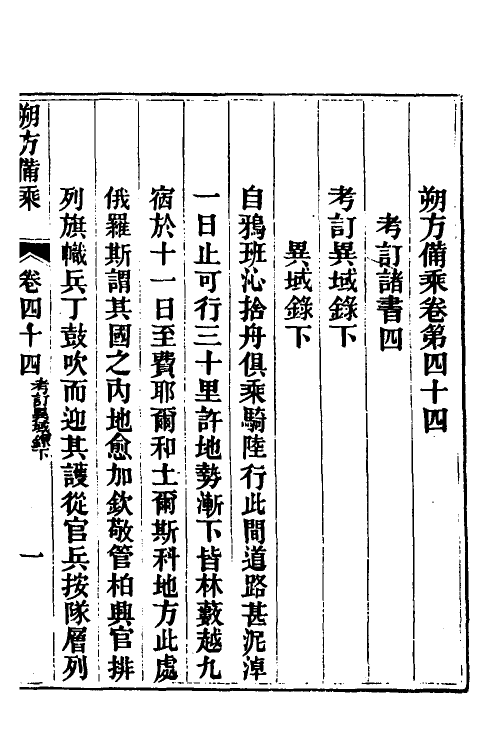 朔方備乘卷第四十四
考訂諸書四
考訂異域錄下
異域錄下
自鴉班沁捨舟俱乘騎陸行此間道路甚泥淖
一日止可行三十里許地勢漸下皆林藪越九
宿於十一日至費耶爾和土爾斯科地方此處
俄羅斯謂其國之內地愈加欽敬管柏興官排
列旗幟兵丁鼓吹而迎其護從官兵按隊層列
朔方備乘 卷四十四 考訂異域錄下 一